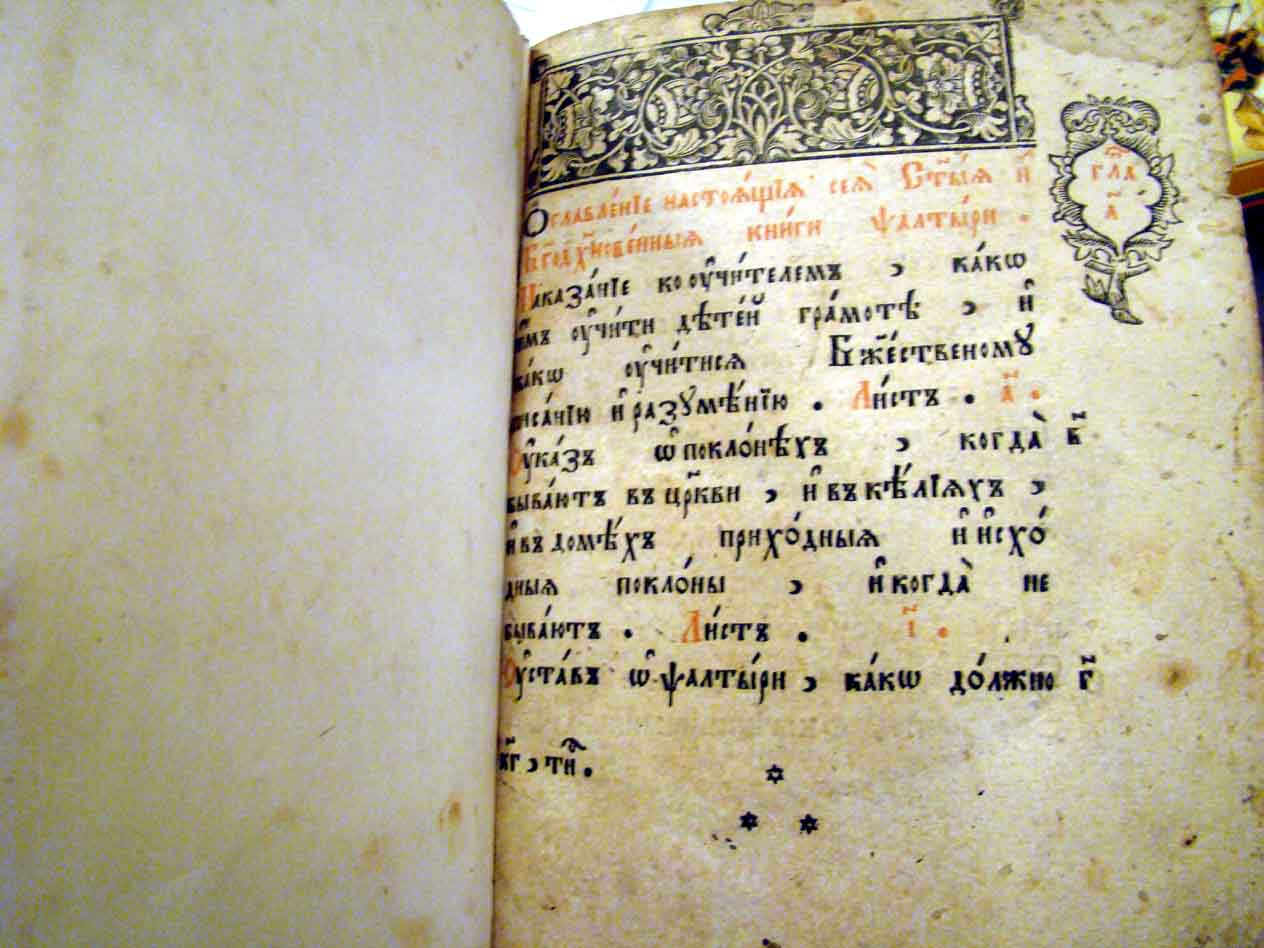 Ѻславле́нїе настоѧ́щїѧ сеѧ̀ Ст҃ы́ѧ и҆
Бг҃одх҃нове́нныѧ кни́ги ѱалты́ри .
Наказа́нїе ко оу҆чи́телемъ , ка́кѡ
и҆̀мъ оу҆чи́ти дѣте́й гра́мотѣ , и҆
ка́кѡ оу҆чи́тисѧ Бж҃е́ственомꙋ
писа́нїю и҆ разꙋмѣ́нїю . Ли́стъ . а҃ .
Оу҆ка́зъ ѡ҆ покло́нѣхъ , когда̀ в҃
быва́ютъ въ цр҃кви , и҆ въ кѣ́лїѧхъ ,
и҆ въ домѣ́хъ прихо́дныѧ и҆ и҆схо́
дныѧ покло́ны , и҆ когда̀ не
быва́ютъ . Ли́стъ . і҃ .
Оу҆ста́въ ѡ҆ ѱалты́ри , ка́кѡ до́лжно г҃
гла
а҃